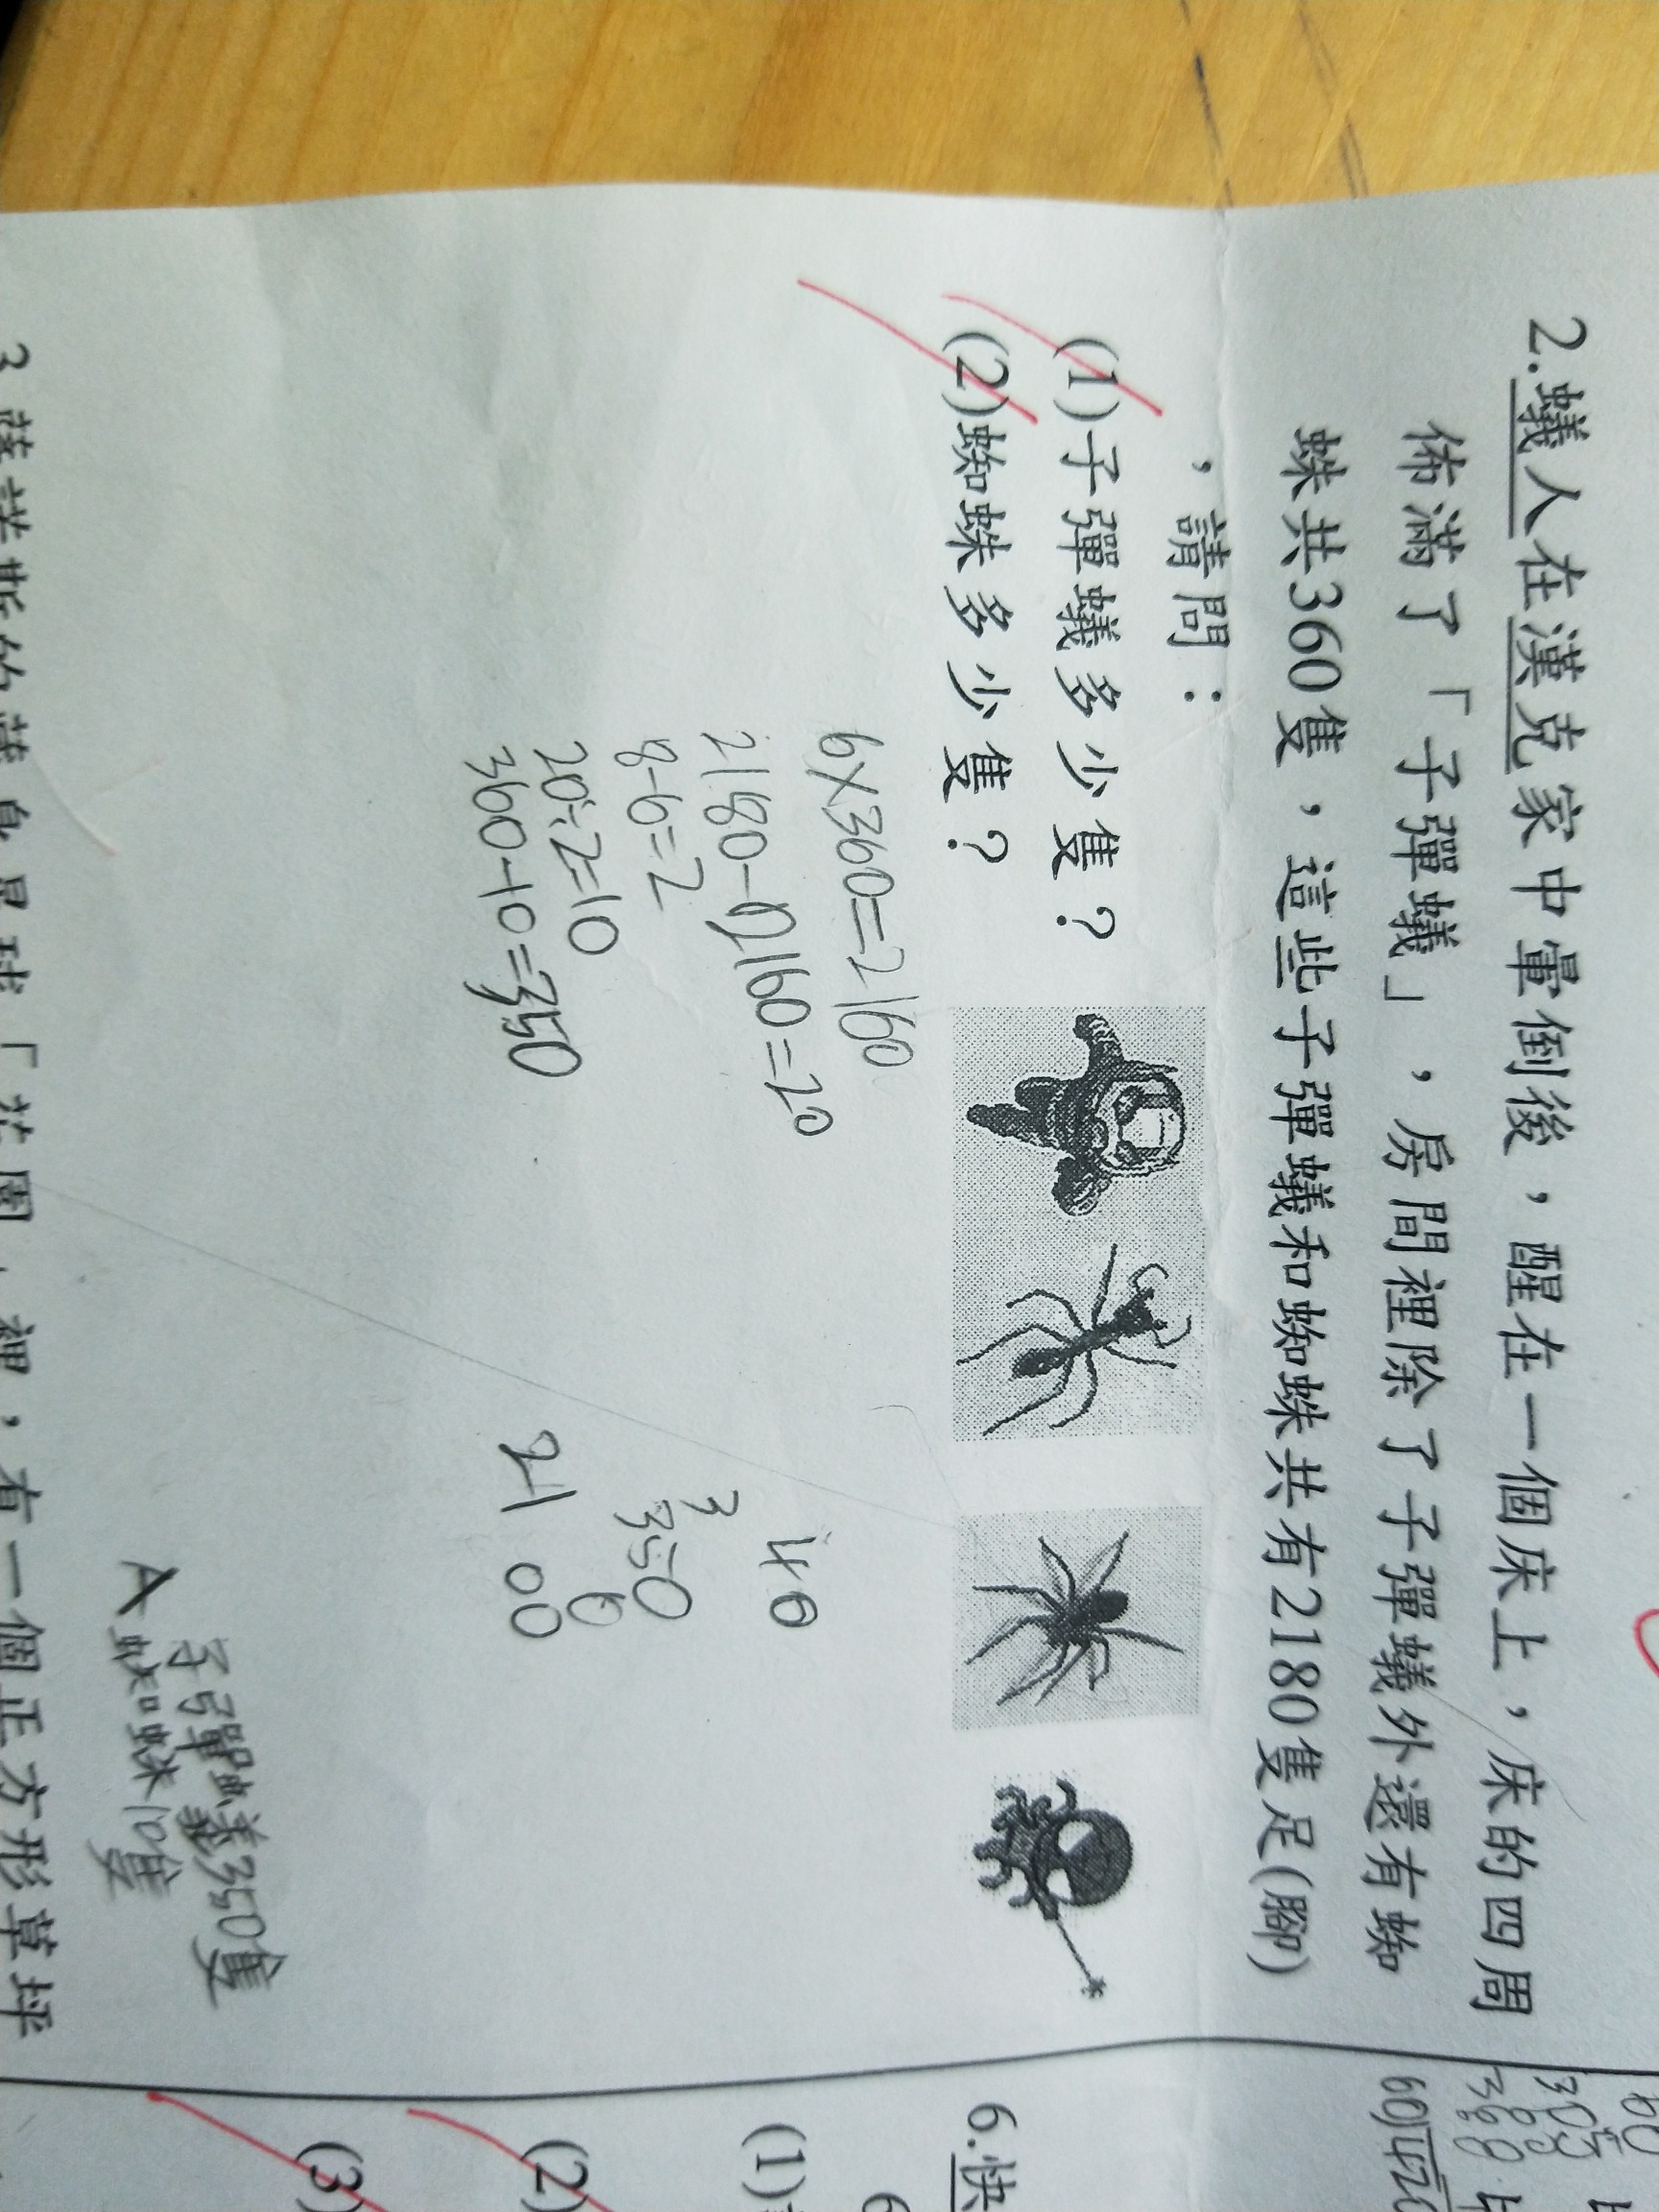 2.蟻人在漢克家中暈倒後，醒在一個床上，床的四周
佈滿了「子彈蟻」，房間裡除了子彈蟻外還有蜘
蛛共360隻，這些子彈蟻和蜘蛛共有2180隻足(腳)
，請問：
(1)子彈蟻多少隻？
(2)蜘蛛多少隻？
6×360=2160
2180-2160=20
8-6=2
20÷2=10
360-10=350
40
3
350
6
21 00
子彈蟻350隻
A 蜘蛛10隻
6.快
(1)
(2)
(3)